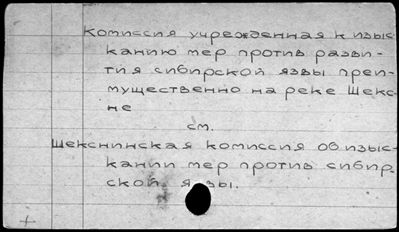 Комиссия учрежденная к изыс-
канию мер против разви-
тия сибирской язвы преи-
мущественно на реке Шекс-
не
см.
Шекснинская комиссия об изыс-
кании мер против сибир-
ской язвы.